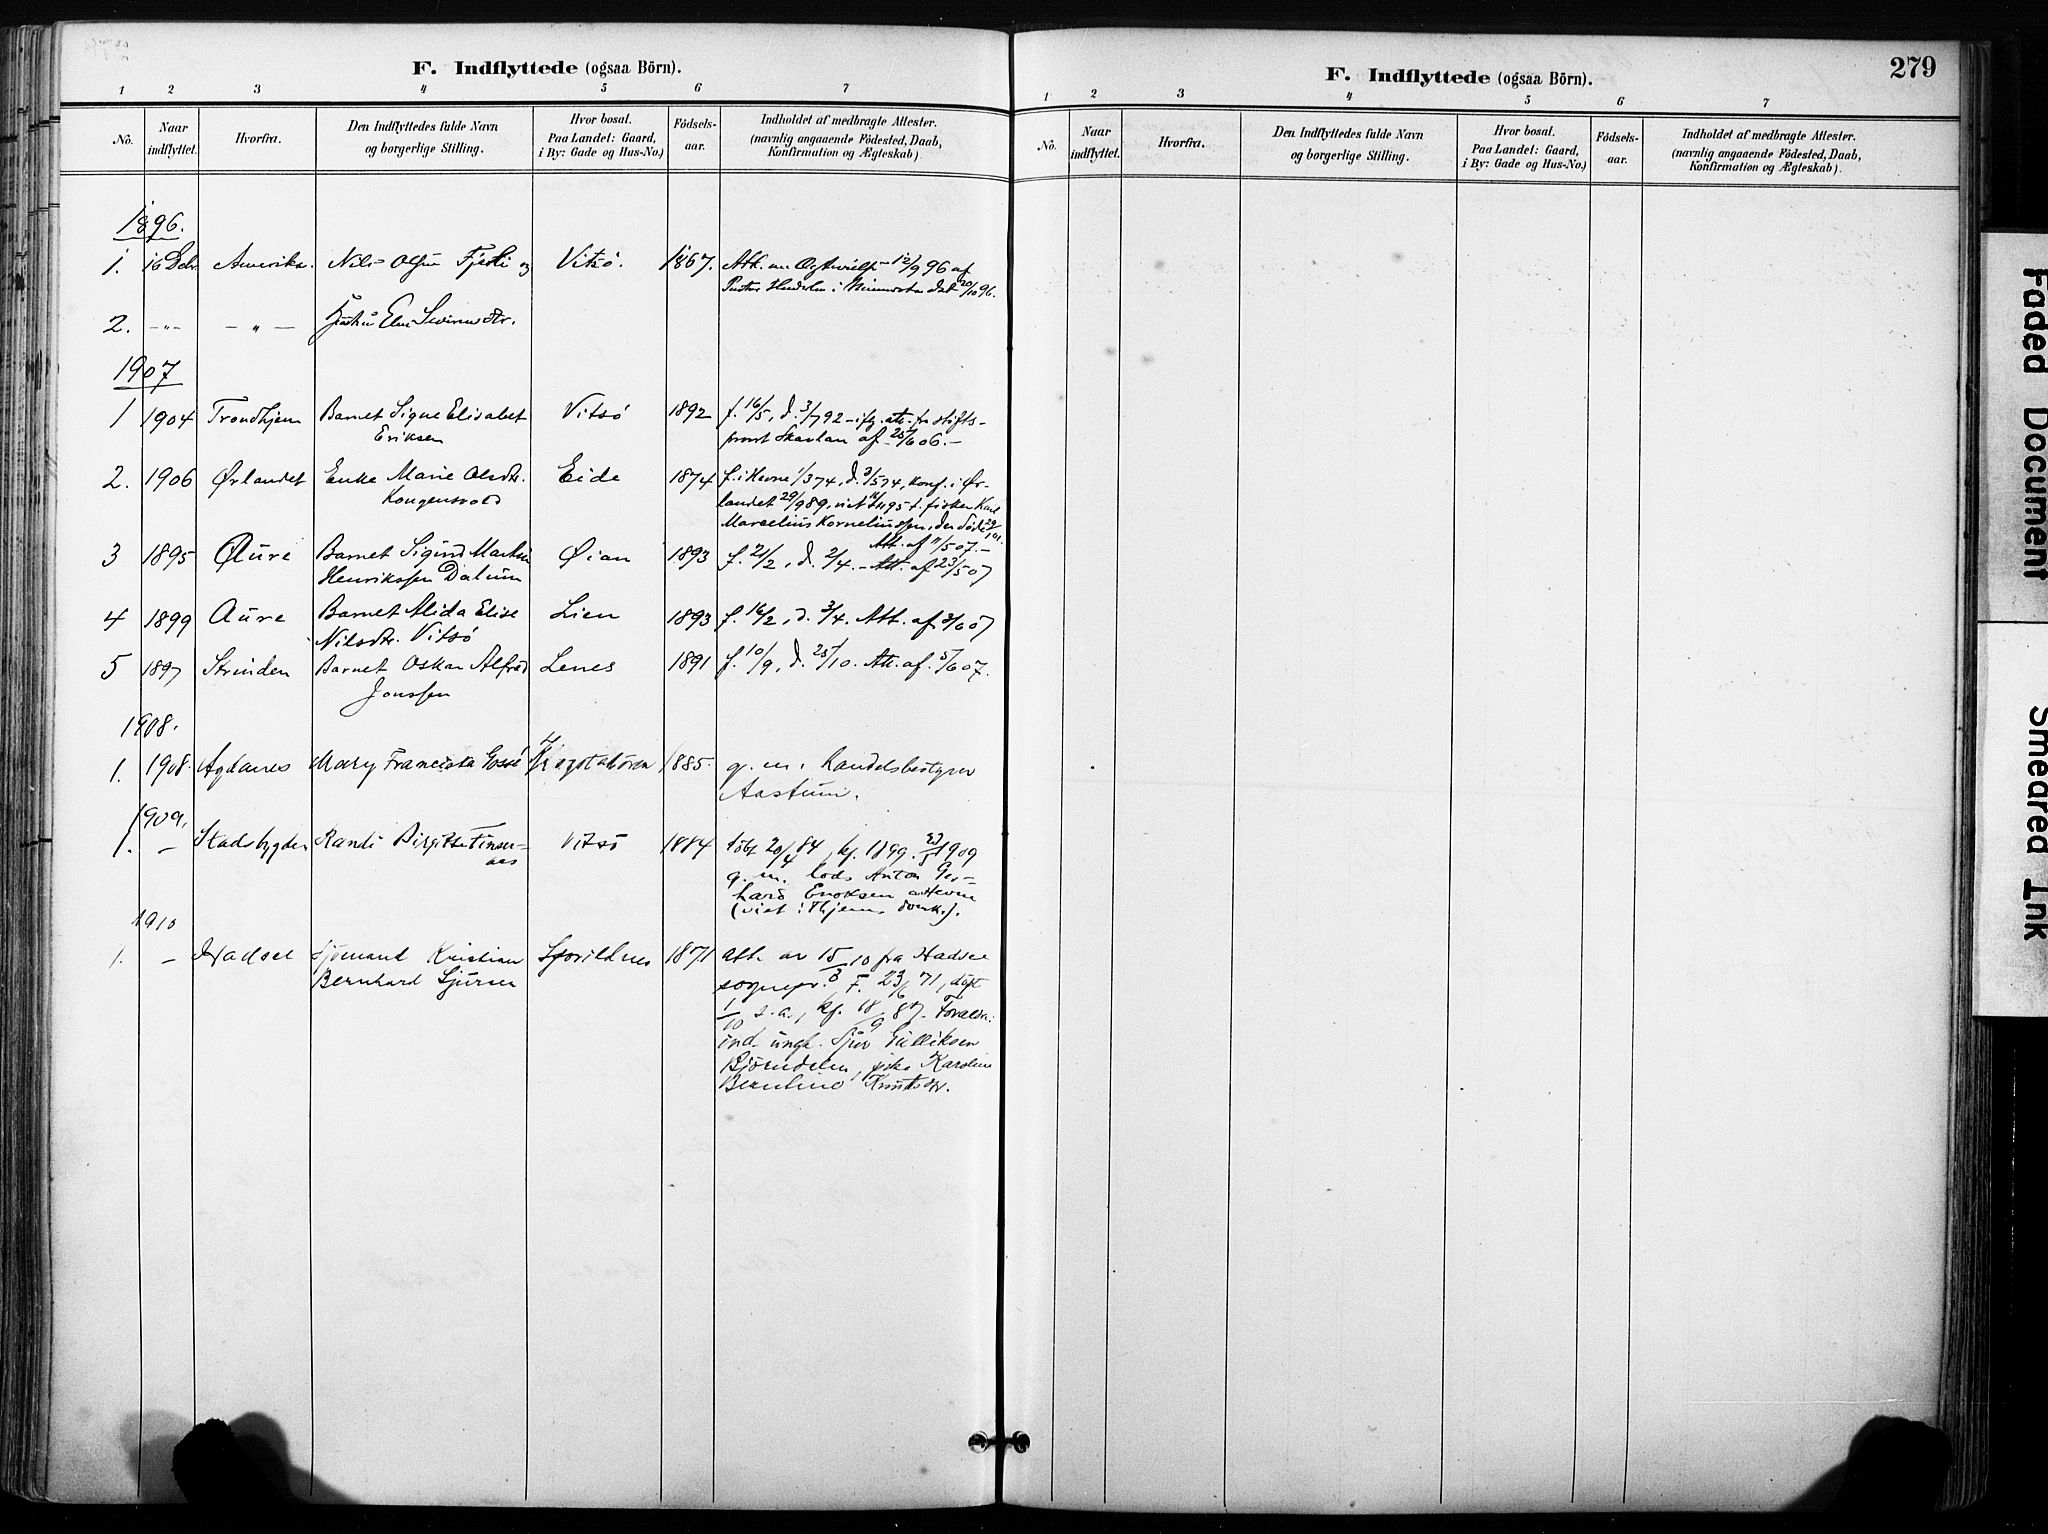 F. Indflyttede (ogsaa Börn).
1 2 3 4 5 6 7
No. Naar indflyttet. Hvorfra. Den Indflyttedes fulde Navn og borgerlige Stilling. Hvor bosat. Paa Landet: Gaard, i By: Gade og Hus-No.) Födsels-aar. Indholdet af medbragte Attester. (navnlig angaaende Födested, Daab, Konfirmation og Ægteskab).
1896.
1. 16 Dcbr Amerika. Nils Olsen FjeSli og Vitsö. 1867. Att. om 12/9 96 af
i Minnesota dat 20/10 96.
2. -"- -"- Hustru
1907
1 1904 Trondhjem Barnet Signe Elisabet Vitsö 1892 f. 16/5, d. 3/7 92 - ifg. att. fr. stifts-
Eriksen provst Skavlan af 25/6 06.-
2. 1906 Ørlandet Enke Marie Olsdtr. Eide 1874 f. i Hevne 1/3 74, d. 3/5 74, konf. i Ør-
Kongensvold landet 29/9 89, viet 95 t. fisker Karl
Marcelius Korneliussen, der döde 29/1 01.
Att. af 11/5 07.-
3 1895 Aure Barnet Sigurd Martin Øian 1893 f. 21/2, d. 2/4. - Att. af 23/5 07
Henrikssen Dalum
4 1899 Aure Barnet Alida Elise Lien 1893 f. 16/2, d. 3/4. Att. af 3/6 07
Nilsdtr. Vitsö
5 1897 Strinden Barnet Oskar Alfred Lenes 1891 f. 10/9, d. 25/10. Att. af. 5/6 07.
Jonssen
1908.
1. 1908. Agdanes Mary Francista 1885. g. m. handelsbestyrer
Aastum.
1909.
1. - Stadsbygden Randi Birgitte Finser- Vitsö 1884 döbt 20/4 84, kf. 1899. 1909
aas g. m. lods Anton Ger-
hard Eriksen Hevne
(viet i Thjems domk.).
1910
1. - Hadsel Sjömand Kristian 1871 att. av 15/3 10 fra Hadsel
Bernhard Sjursen sognepr. F. 23/6 71, døpt
1/10 s.a., kf. 18/9 87. Foreldre:
ind. ungk. Sjur Gulliksen
Björndalen, pike Karoline
Berntine Knutsdtr.
279
F. Indflyttede (ogsaa Börn).
1 2 3 4 5 6 7
No. Naar indflyttet. Hvorfra. Den Indflyttedes fulde Navn og borgerlige Stilling. Hvor bosat. Paa Landet: Gaard, i By: Gade og Hus-No.) Födsels-aar. Indholdet af medbragte Attester. (navnlig angaaende Födested, Daab, Konfirmation og Ægteskab).
Faded Document
Smeared Ink